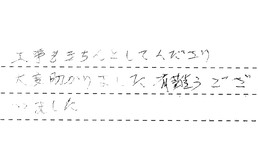 工事もきちんとしてくださり
大変助かりました。有難うござ
いました